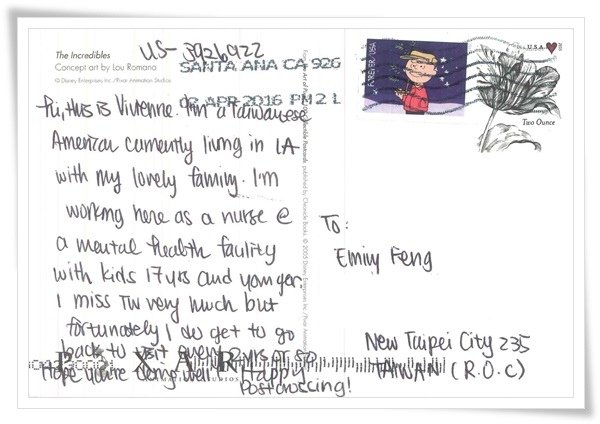 The Incredibles
Concept art by Lou Romano
© Disney Enterprises Inc./Pixar Animation Studios
US-3926922
SANTA ANA CA 926
02 APR 2016 PM 2 L
Hi, this is Vivienne. I'm a Taiwanese
American currently living in LA
with my lovely family. I'm
working here as a nurse @
a mental health facility
with kids 17 yrs and younger.
I miss TW very much but
fortunately I do get to go
back to visit every 2 yrs or so
Hope you're doing well! Happy
Postcrossing!
PIXAR
ANIMATION STUDIOS
published by Chronicle Books. © 2005 Disney Enterprises Inc./Pixar Animation Studios
FOREVER USA
U.S.A.
Two Ounce
To:
Emily Feng
New Taipei City 235
TAIWAN (R.O.C)